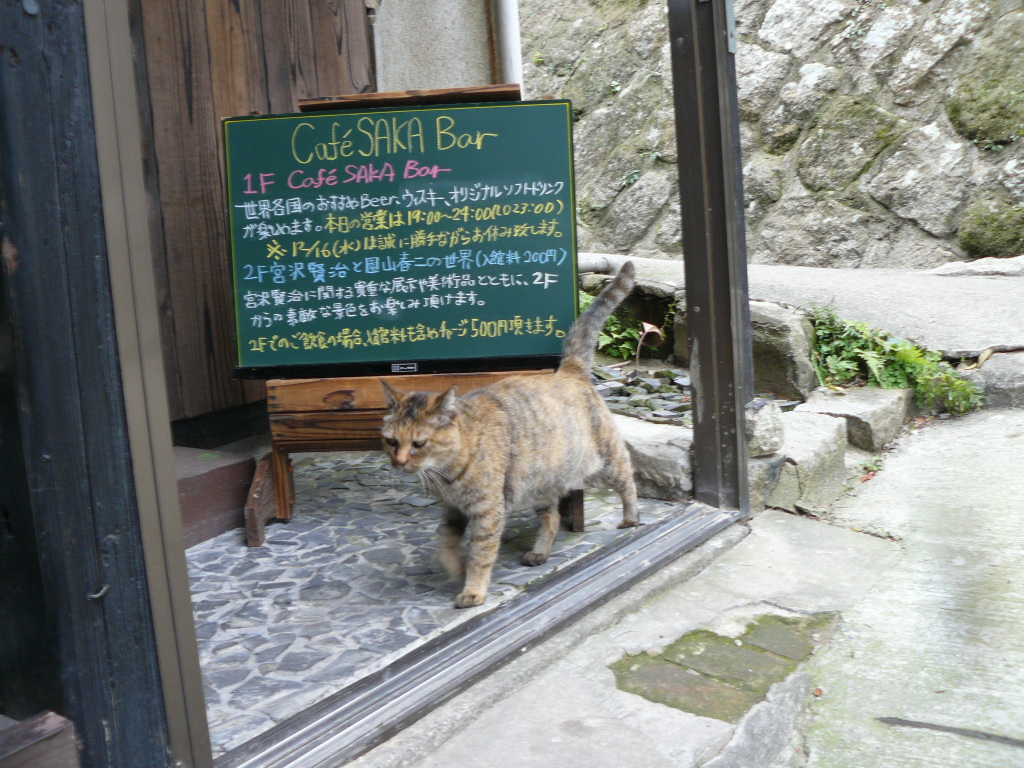 Café SAKA Bar
1F Café SAKA Bar
世界各国のおすすめBeer、ウィスキー、オリジナルソフトドリンク
が楽しめます。本日の営業は19:00〜24:00(LO23:00)
※ 12/16(水)は誠に勝手ながらお休み致します。
2F宮沢賢治と園山春二の世界(入館料200円)
宮沢賢治に関する貴重な展示や美術品とともに、2F
からの素敵な景色をお楽しみ頂けます。
2Fでのご飲食の場合、入館料も含めチャージ500円頂きます。